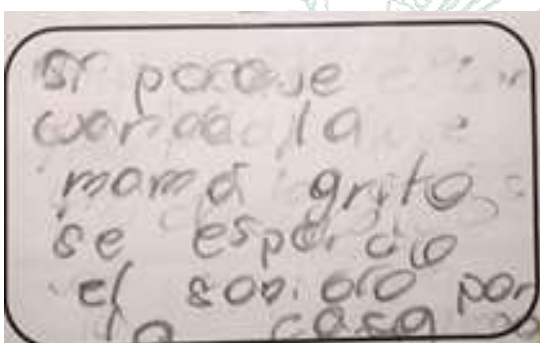 si porque
cuando la
mamá grito
se esparcio
el sonido por
la casa